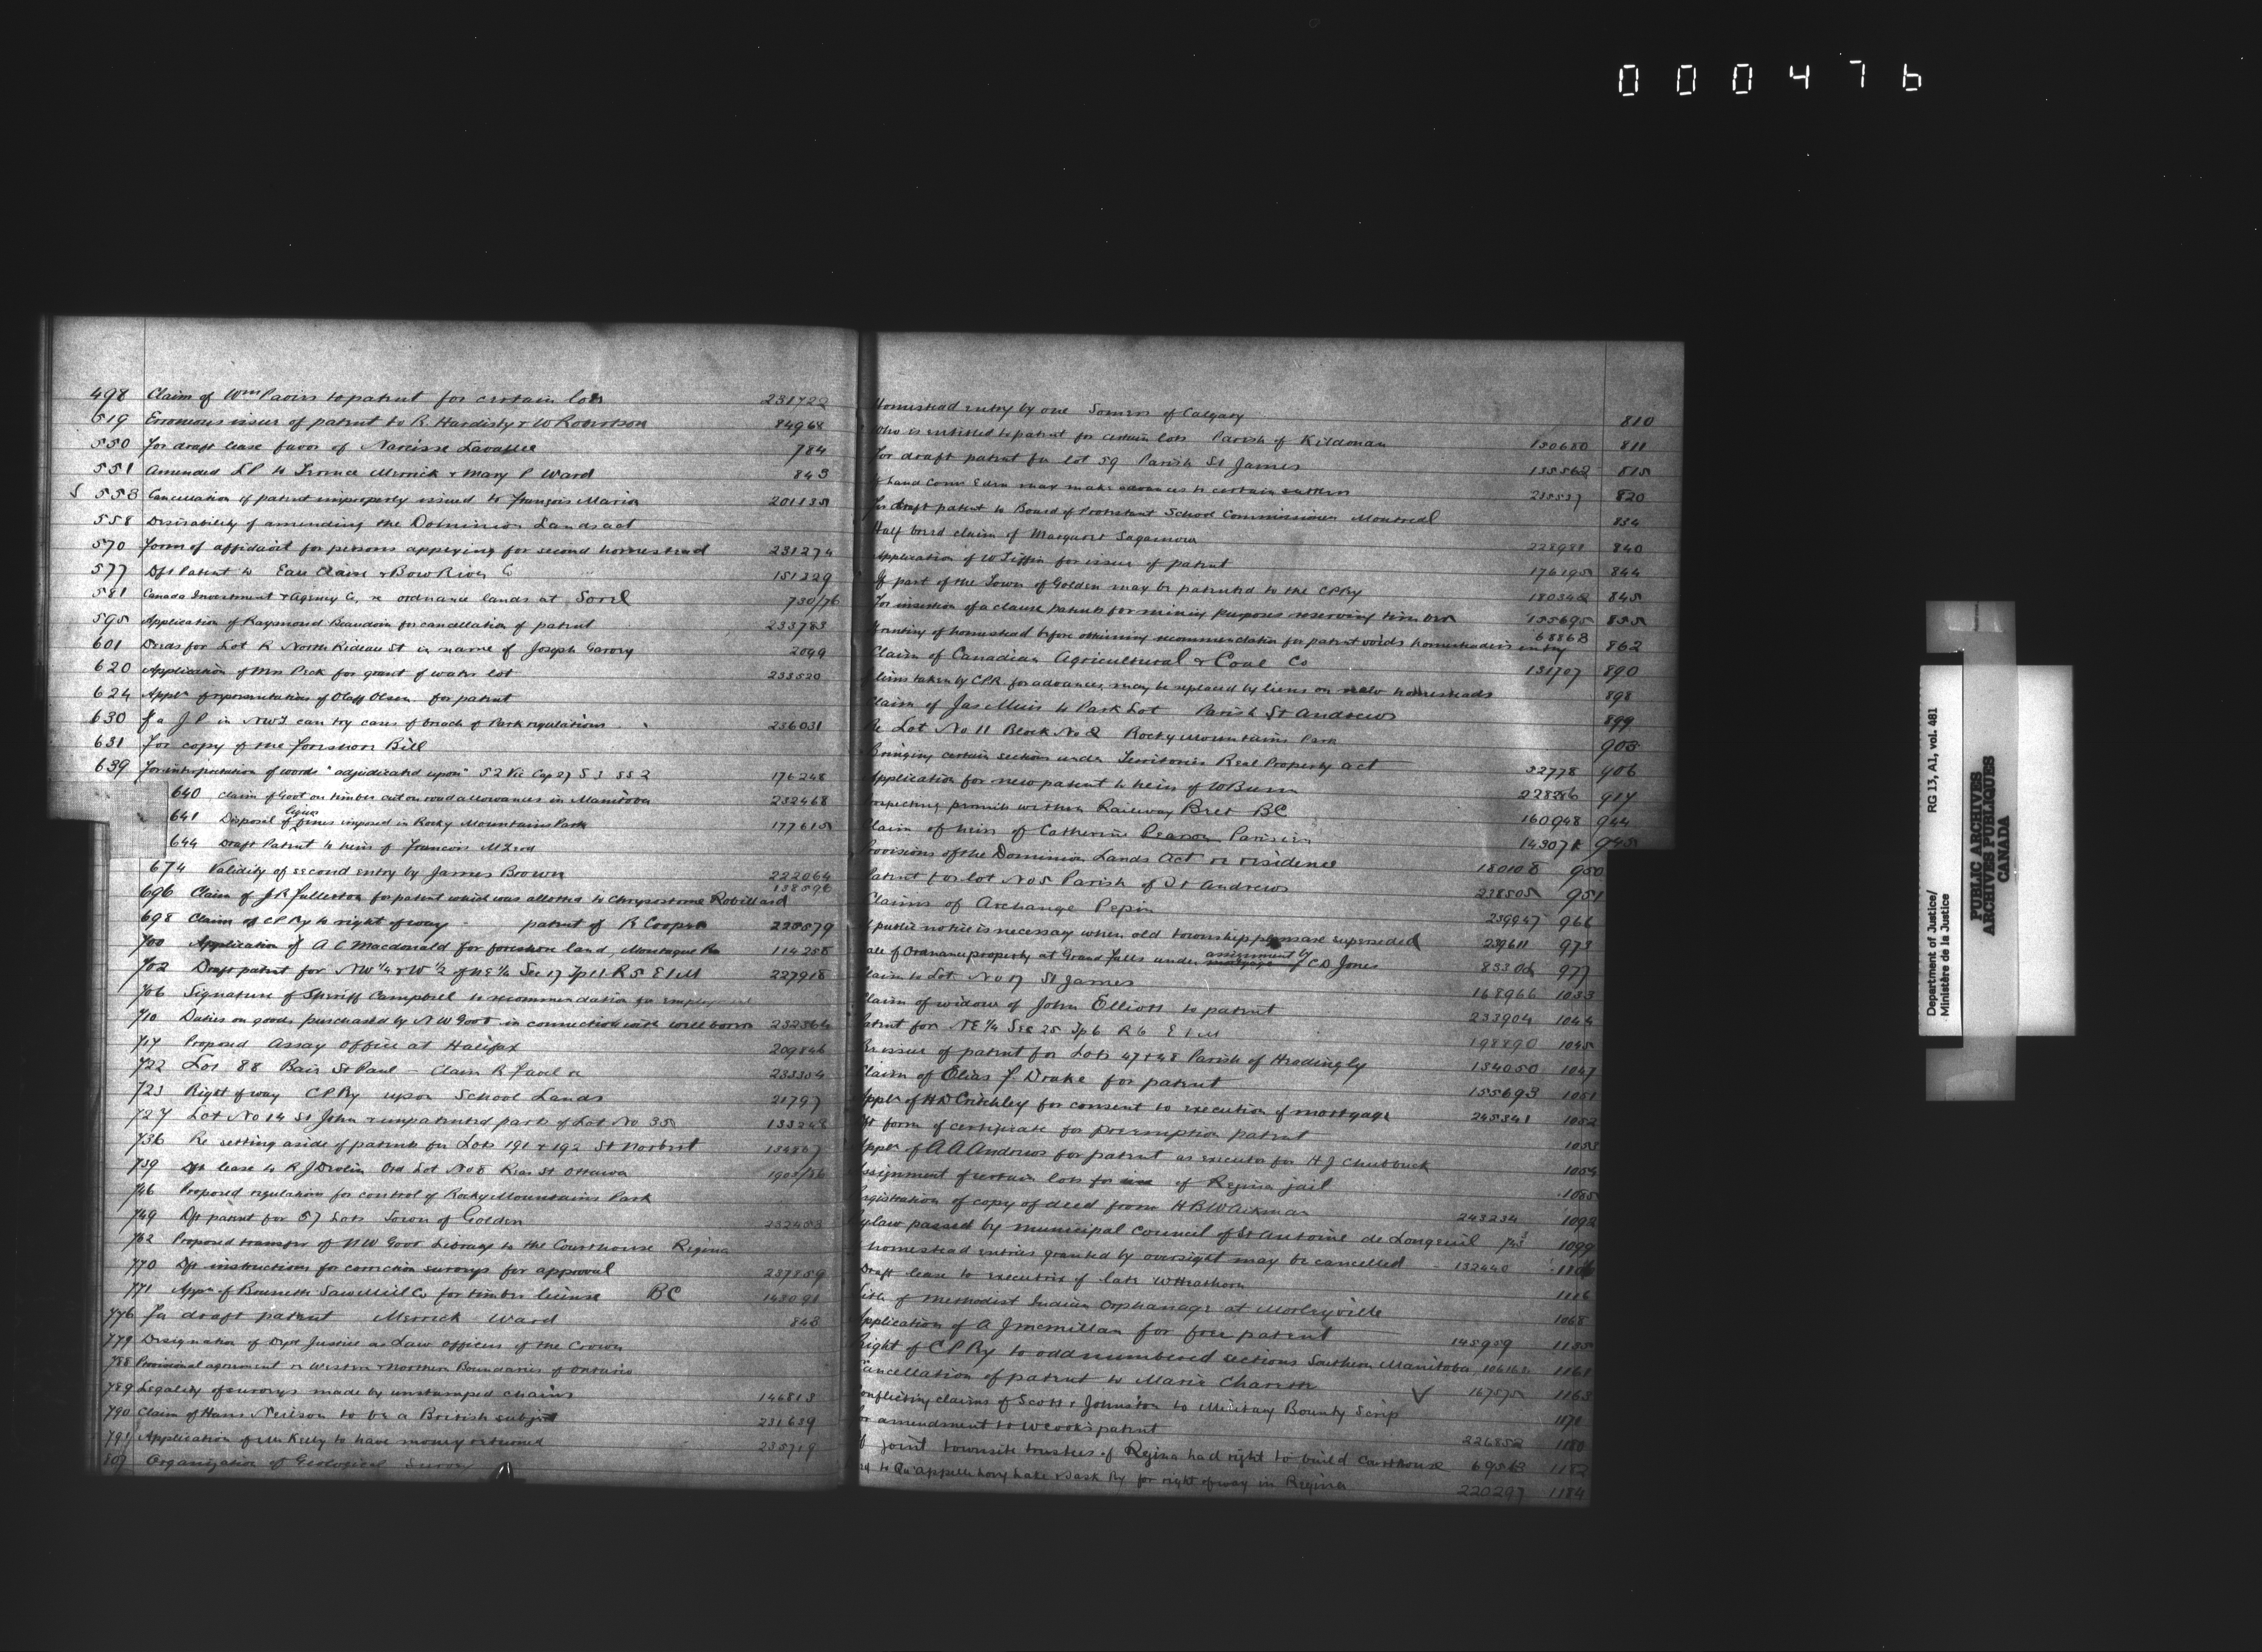 000476
498 Claim of Wm Pavis to patent for certain lots 231722
519 Erroneous issue of patent to R. Hardisty & W Robertson 84968
550 For draft lease favor of Narcisse Lavallee 784
551 Amended LP to Terence Merrick & Mary P Ward 843
553 Cancellation of patent improperly issued to François Marion 201135
558 Desirability of amending the Dominion Lands act
570 Form of affidavit for persons applying for second homestead 231274
577 Dft Patent to Eau Claire & Bow River Co 151229
581 Canada Investment & Agency Co, re ordnance lands at Sorel 730/76
595 Application of Raymond Beaudoin for cancellation of patent 233783
601 Deeds for Lot R North Rideau St in name of Joseph 2099
620 Application of Mrs Peck for grant of water lot 233520
624 Appln & representation of Oloff Olsen for patent
630 If a J.P in NWT can try cases of breach of Park regulations 236031
631 For copy of the foreshore Bill
639 For interpretation of words "adjudicated upon" 52 Vic Cap 27 S 3 SS 2 176248
640 Claim of Govt on timber cut on road allowances in Manitoba 232468
641 Disposal of liquor fines imposed in Rocky Mountains Park 177615
644 Draft Patent to heirs of Francois McLeod
674 Validity of second entry by James Brown 222064
696 Claim of J R Fullerton for patent which was allotted to Chrysostome Robillard 138596
698 Claim of CP Ry to right of way patent of R Cooper 228579
700 Application of A C Macdonald for foreshore land, Montague 114258
702 Draft patent for NW 1/4 & W 1/2 of NE 1/4 Sec 17 Tp 11 R 5 E 1 M 227918
706 Signature of Sheriff Campbell to recommendation for
710 Duties on goods purchased by NW Govt in connection with well boring 232364
717 Proposed Assay Office at Halifax 209846
722 Lot 88 Baie St Paul - Claim R 233354
723 Right of way CP Ry upon School Lands 21797
727 Lot No 14 St John & unpatented part of Lot No 35 133243
736 Re setting aside of patents for Lots 191 & 192 St Norbert 134867
739 Dft lease to R J Devlin Ord Lot No 8 St Ottawa 1903/76
746 Proposed regulations for control of Rocky Mountains Park
749 Dft patent for 57 Lots Town of Golden 232453
762 Proposed transfer of NW Govt Library to the Courthouse Regina
770 Dft instructions for correction surveys for approval 237859
771 Appn of Brunette Saw Mill Co for timber license BC 143091
776 For draft patent Merrick Ward 843
779 Designation of Dept Justice as Law officers of the Crown
788 Provisional agreement re Western & Northern Boundaries of Ontario
789 Legality of surveys made by unstamped chains 146813
790 Claim of Hans Neilson to be a British subject 231639
791 Application of Mr Kelly to have money returned 235719
807 Organization of Geological Survey
Homestead entry by one Somers of Calgary 810
Who is entitled to patent for certain lots Parish of Kildonan 130680 811
For draft patent for lot 59 Parish St James 135562 815
If Land Comr Eden may make advances to certain settlers 215537 820
For draft patent to Board of Protestant School Commissioners Montreal 834
Half breed claim of Margaret Sagamore 228981 840
Application of W Tiffin for issue of patent 176195 844
If part of the Town of Golden may be patented to the CP Ry 180342 845
For insertion of a clause patents for mining purposes reserving timber 155695 855
Granting of homestead before obtaining recommendation for patent voids homesteader's entry 68868 862
Claim of Canadian Agricultural & Coal Co 131707 890
If liens taken by CPR for advances, may be replaced by liens on new homesteads 898
Claim of Jas Muir to Park Lot Parish St Andrews 899
Re Lot No 11 Block No 2 Rocky Mountains Park 903
Bringing certain section under Territories Real Property act 32778 906
Application for new patent to heirs of W Burn 228286 917
Prospecting permits within Railway Belt BC 160948 944
Claim of heirs of Catherine Parisien 143071 945
Provisions of the Dominion Lands Act re residence 180108 950
Patent for lot No 5 Parish of St Andrews 238505 951
Claims of Archange Pepin 239947 966
If public notice is necessary when old township plans are superseded 239611 973
Sale of Ordnance property at Grand Falls under assignment by C D Jones 8530 977
Claim to Lot No 17 St James 168966 1033
Claim of widow of John Elliott to patent 233904 1044
Patent for NE 1/4 Sec 25 Tp 6 R 6 E 1 M 198890 1045
Re issue of patent for Lots 47 & 48 Parish of Headingly 134050 1047
Claim of Elias F. Drake for patent 155693 1051
Appln of H D Critchley for consent to execution of mortgage 245341 1052
Dft form of certificate for preemption patent 1053
Appln of A A Andrews for patent as executor for H J Chubbuck 1054
Assignment of certain lots for use of Regina jail 1085
Registration of copy of deed from H B W Aikman 243234 1092
Bylaw passed by municipal Council of St Antoine de Longeuil 1099
If homestead entries granted by oversight may be cancelled 132440 1106
Draft lease to executrix of late W 1116
Title of Methodist Indian Orphanage at Morleyville 1068
Application of A J McMillan for free patent 145959 1155
Right of CP Ry to odd numbered sections Southern Manitoba 1161
Cancellation of patent to Marie 167575 1163
Conflicting claims of Scott & Johnston to Military Bounty Scrip 1171
For amendment to W Cook's patent 226852 1180
If joint townsite trustees of Regina had right to build Courthouse 69563 1182
to Qu'appelle Long Lake & Sask Ry for right of way in Regina 220297 1184
Department of Justice/
Ministère de la Justice
RG 13, A1, vol. 481
PUBLIC ARCHIVES
ARCHIVES PUBLIQUES
CANADA